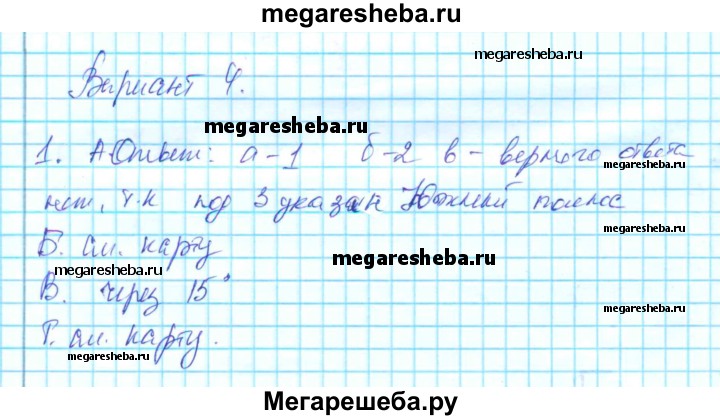 megaresheba.ru
megaresheba.ru
Вариант 4.
megaresheba.ru
1. А.Ответ: а-1 б-2 в-верного ответа
нет, т.к под 3 указан Южный полюс
Б. см. карту
megaresheba.ru
megaresheba.ru
В. через 15°
megaresheba.ru
Г. см. карту.
megaresheba.ru
Мегарешеба.ру